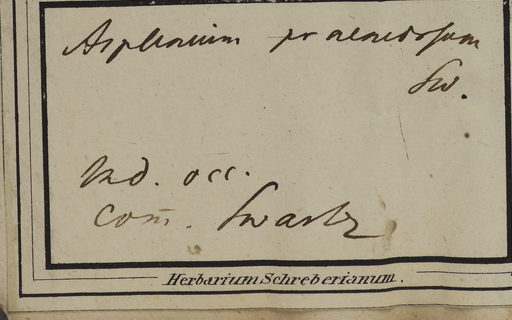 Asplenium praemorsum
Sw.
Ind. occ.
com̄. Swartz
Herbarium Schreberianum.